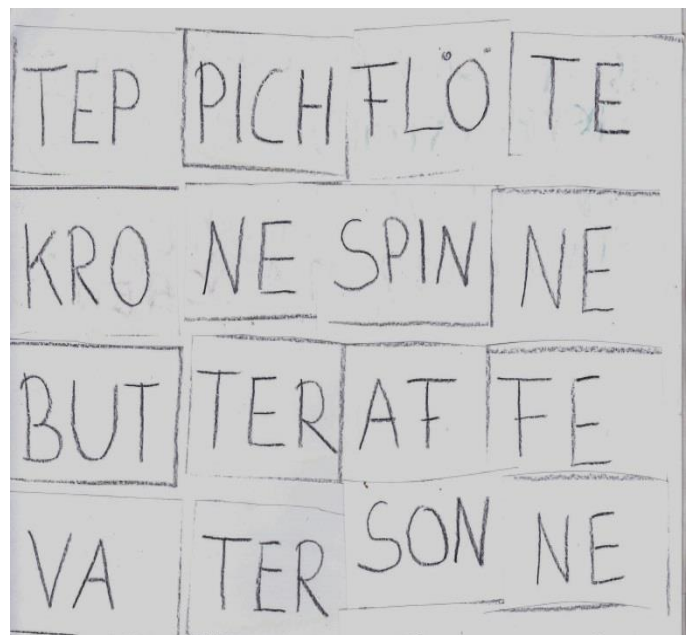 TEP PICH FLÖ TE
KRO NE SPIN NE
BUT TER AF FE
VA TER SON NE